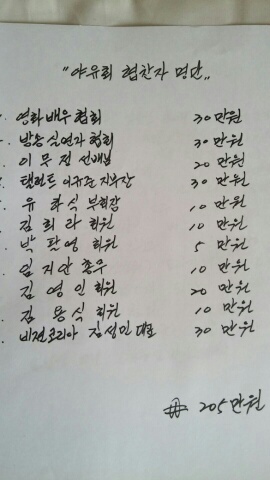 "야유회 협찬자 명단"
영화배우협회 30만원
방송실연자협회 30만원
이무정 선배님 20만원
탤런트 이규준 지부장 30만원
유화식 부회장 10만원
김희라 회원 10만원
박판영 회원 5만원
임지안 총무 10만원
김영인 회원 20만원
김용식 회원 10만원
비전코리아 김성민 대표 30만원
# 205만원